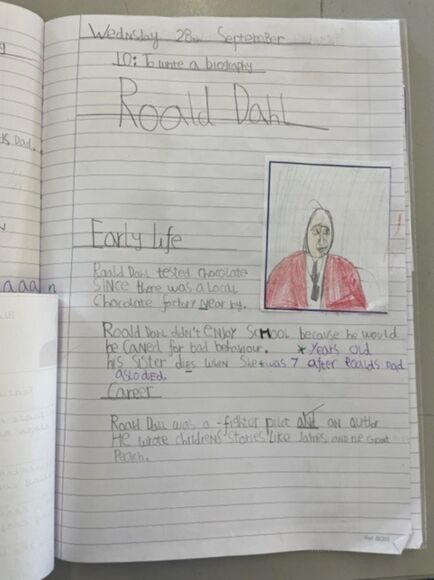 Wednsday 28th September
LO: To write a biography
Roald Dahl
Early life
Roald Dahl tested chocolate
SINce there was a local
Chocolate factory near by.
Roald Dahl didn't enjoy ScHool because he would
be caned for bad behaviour. * years old
his sister dies when she * was 7 after Roalds Dad
also died.
Career
Roald Dahl was a fighter pilot and an author
He wrote childrens stories like James and the Giant
Peach.
ds Dad.
a a a n